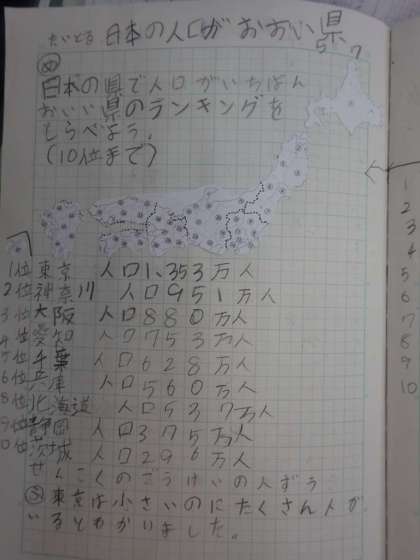 たいとる 日本の人口が おおい県
57
め
日本の県で人口がいちばん
おおい県のランキングを
しらべよう。
(10位まで)
1位東京 人口1,353万人
2位神奈川 人口951万人
3位大阪 人口880万人
4位愛知 人口753万人
千葉 人口628万人
6位兵庫 人口560万人
8位北海道 人口537万人
9位静岡 人口375万人
10位茨城 人口296万人
ぜんこくのごうけいの人ずう
東京は小さいのにたくさん人が
いるとわかりました。
1
2
3
4
5
6
7
8
9
10